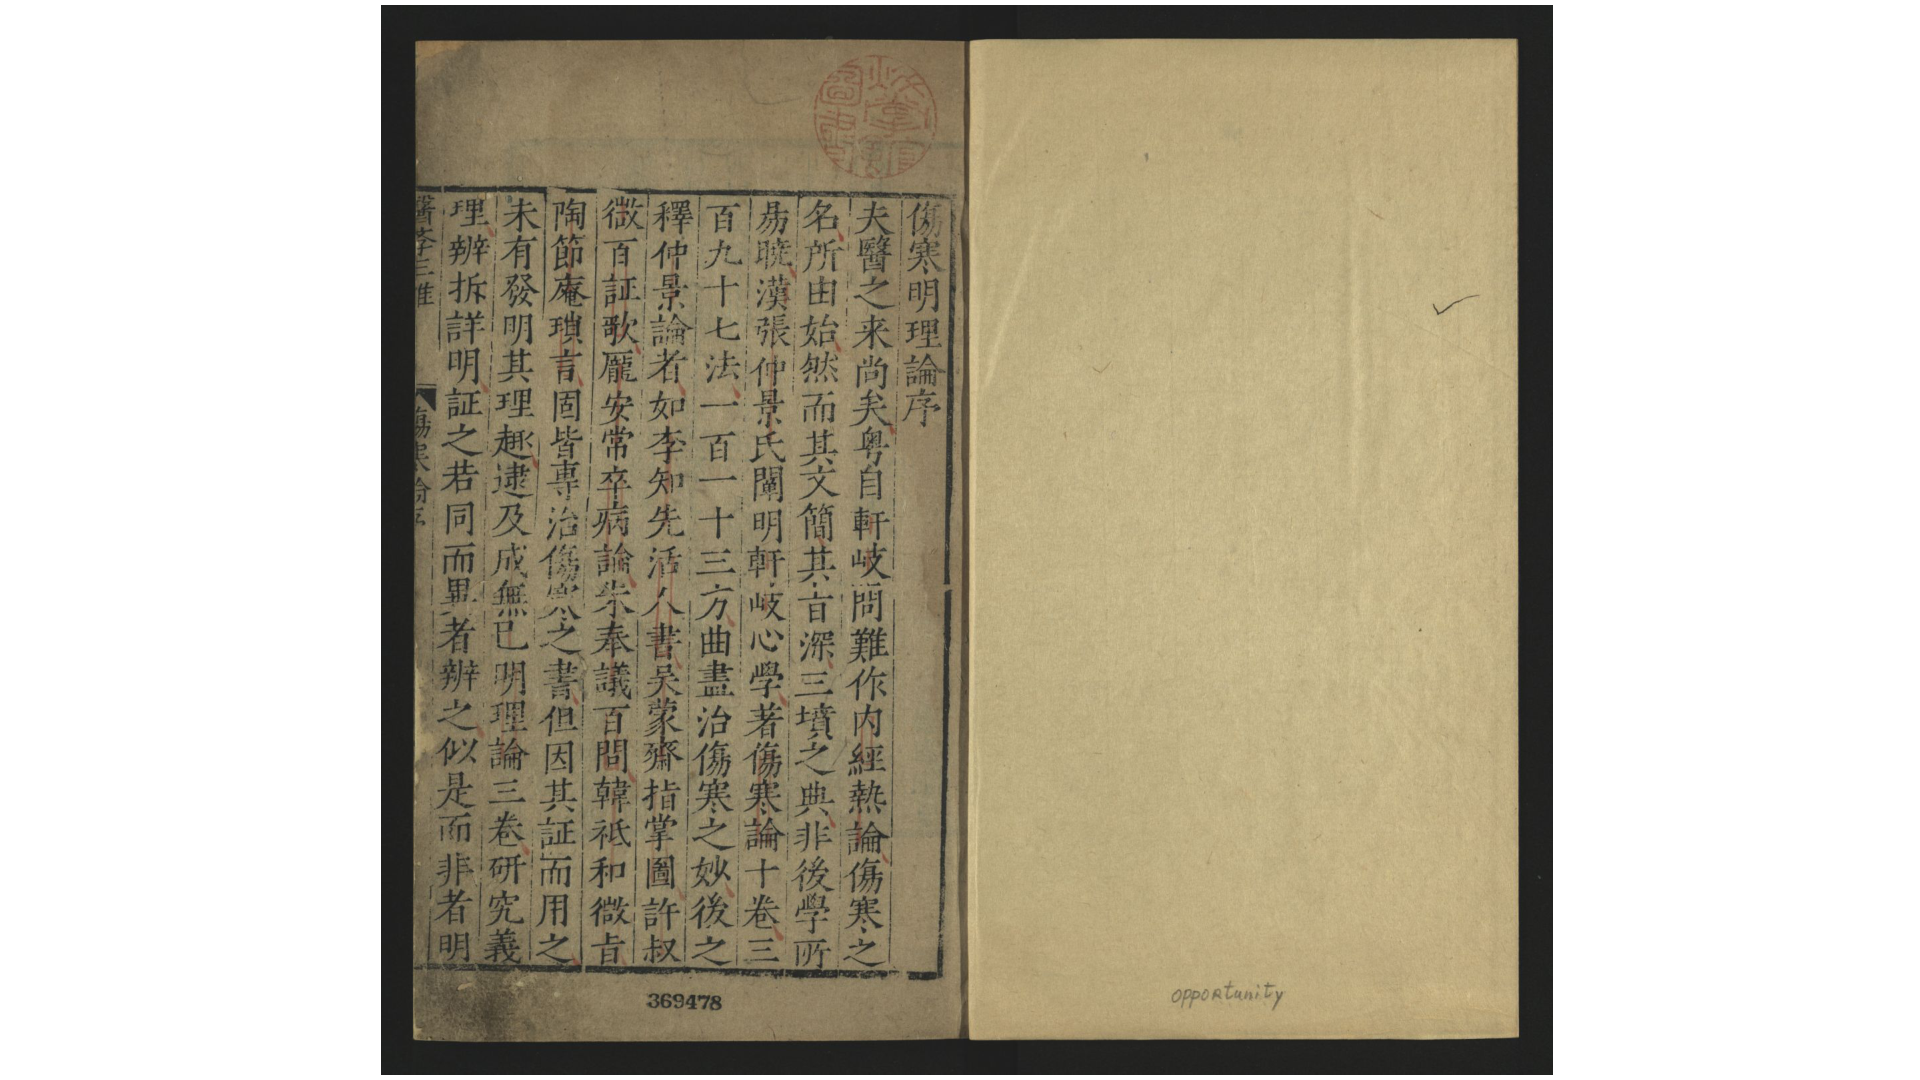 傷寒明理論序
夫醫之来尚矣粤自軒岐問難作内經熱論傷寒之
名所由始然而其文簡其㫖深三墳之典非後學所
易曉漢張仲景氏闡明軒岐心學著傷寒論十卷三
百九十七法一百一十三方曲盡治傷寒之妙後之
釋仲景論者如李知先活人書吴蒙齋指掌圖許叔
微百証歌龐安常卒病論朱奉議百問韓祗和微㫖
陶節庵瑣言固皆專治傷寒之書但因其証而用之
未有發明其理趣逮及成無已明理論三卷研究義
理辨拆詳明証之若同而異者辨之似是而非者明
369478
opportunity